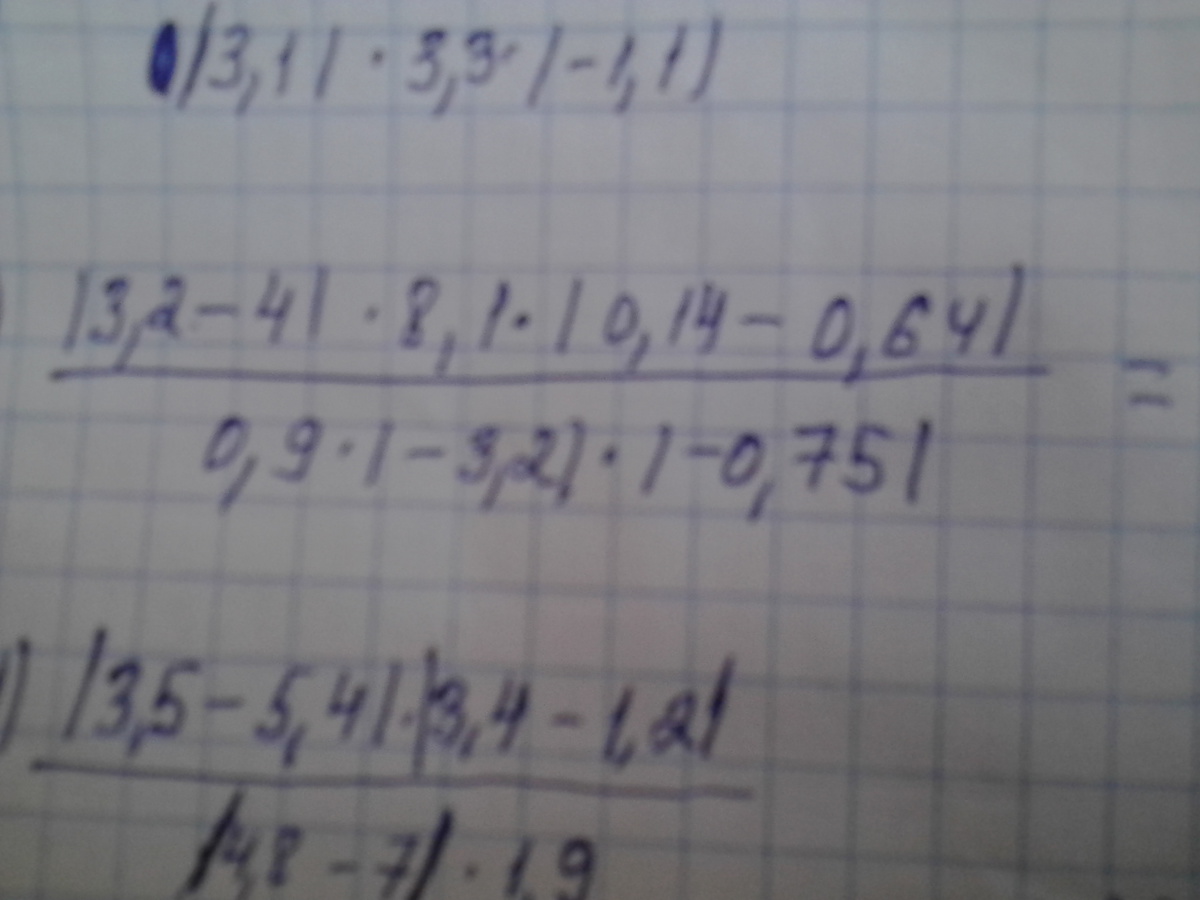 |3,1| · 3,3 · |-1,1|
) |3,2 - 4| · 8,1 · |0,14 - 0,64| =
0,9 · |-3,2| · |-0,75|
) |3,5 - 5,4| · |3,4 - 1,2|
|4,8 - 7| · 1,9